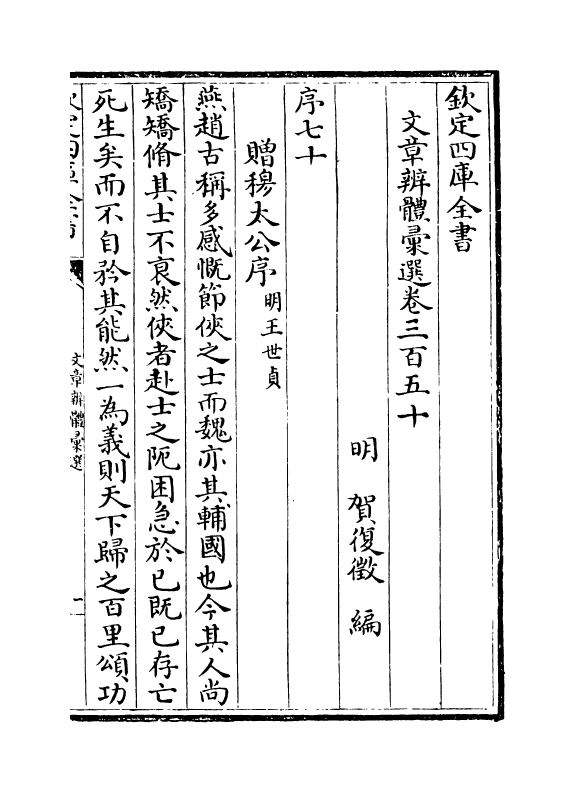 欽定四庫全書
文章辨體彚選卷三百五十
明　賀復徵　編
序七十
贈穆太公序明王世貞
燕趙古稱多感慨節俠之士而魏亦其輔國也今其人尚
矯矯脩其士不衰然俠者赴士之阨困急於已既已存亡
死生矣而不自矜其能然一為義則天下歸之百里頌功
欽定四庫全書
文章辨體彚選
一